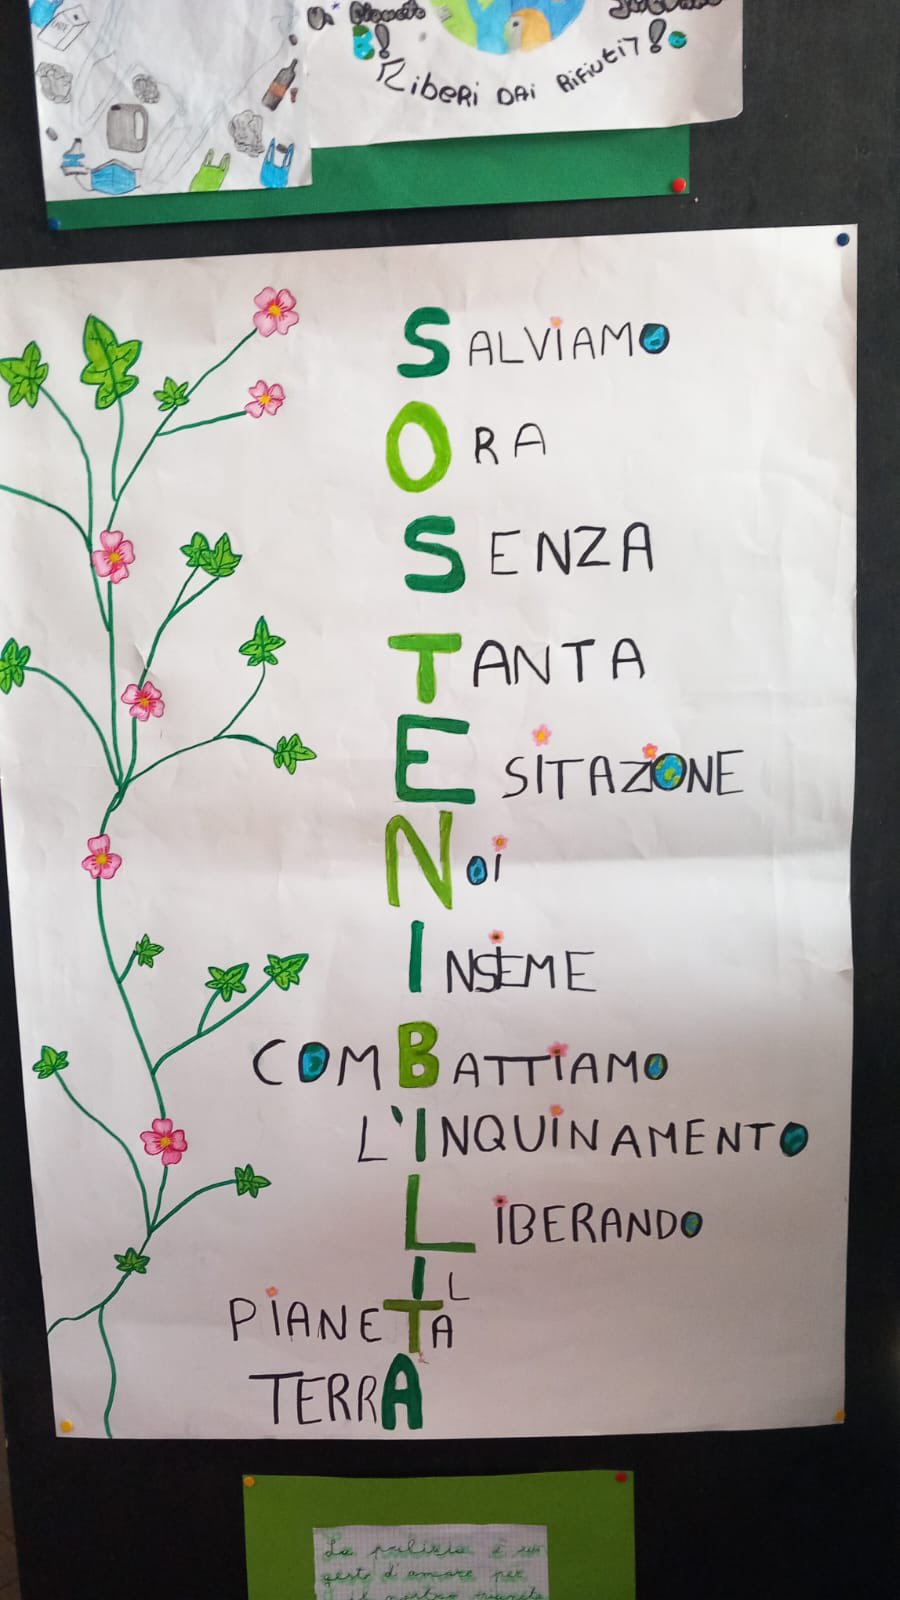 Un Pianeta
B!
Liberi DAi RifiUti7!
SALViAMO
ORA
SENZA
TANTA
ESITAZIONE
NOi
INSIEME
COMBATTiAMO
L'INQUiNAMENTO
LiBERANDO
IL
PiANETA
TERRA
La pulizia è un
gesto d'amore per
il nostro pianeta